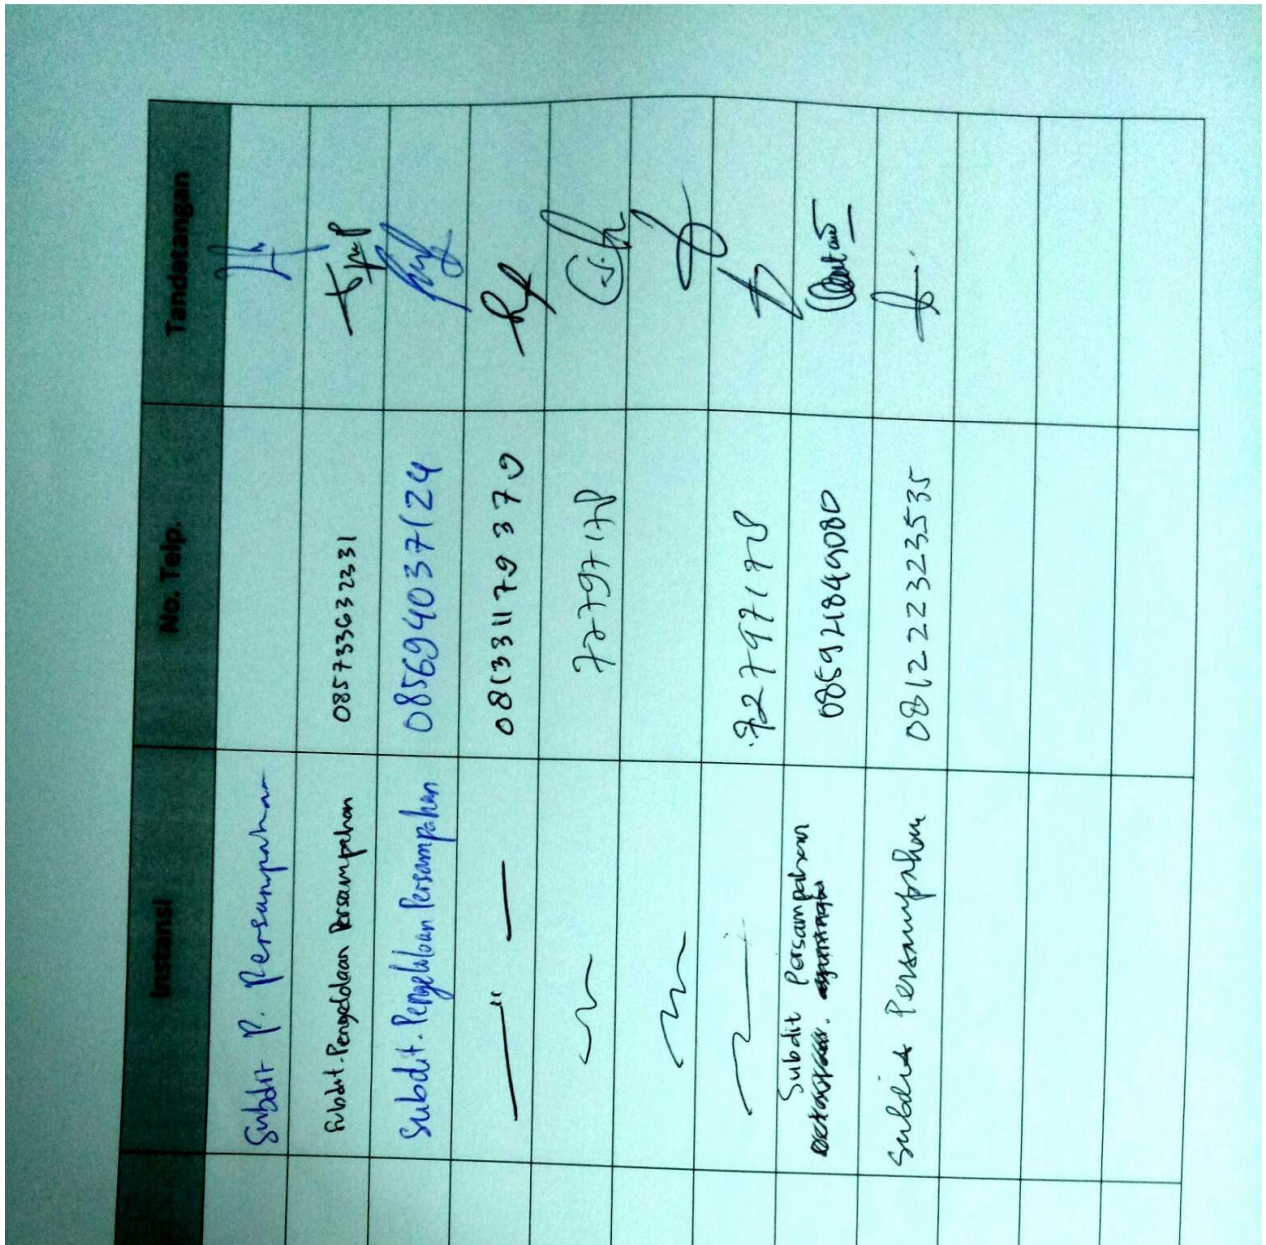 Instansi No. Telp. Tandatangan
Subdit P. Persampahan
Subdit. Pengelolaan Persampahan 085733632331
Subdit. Pengelolaan Persampahan 085694037124
— " — 081331179370
72797178
72797178
Subdit Persampahan 085921849080
Subdit Persampahan 081222323535